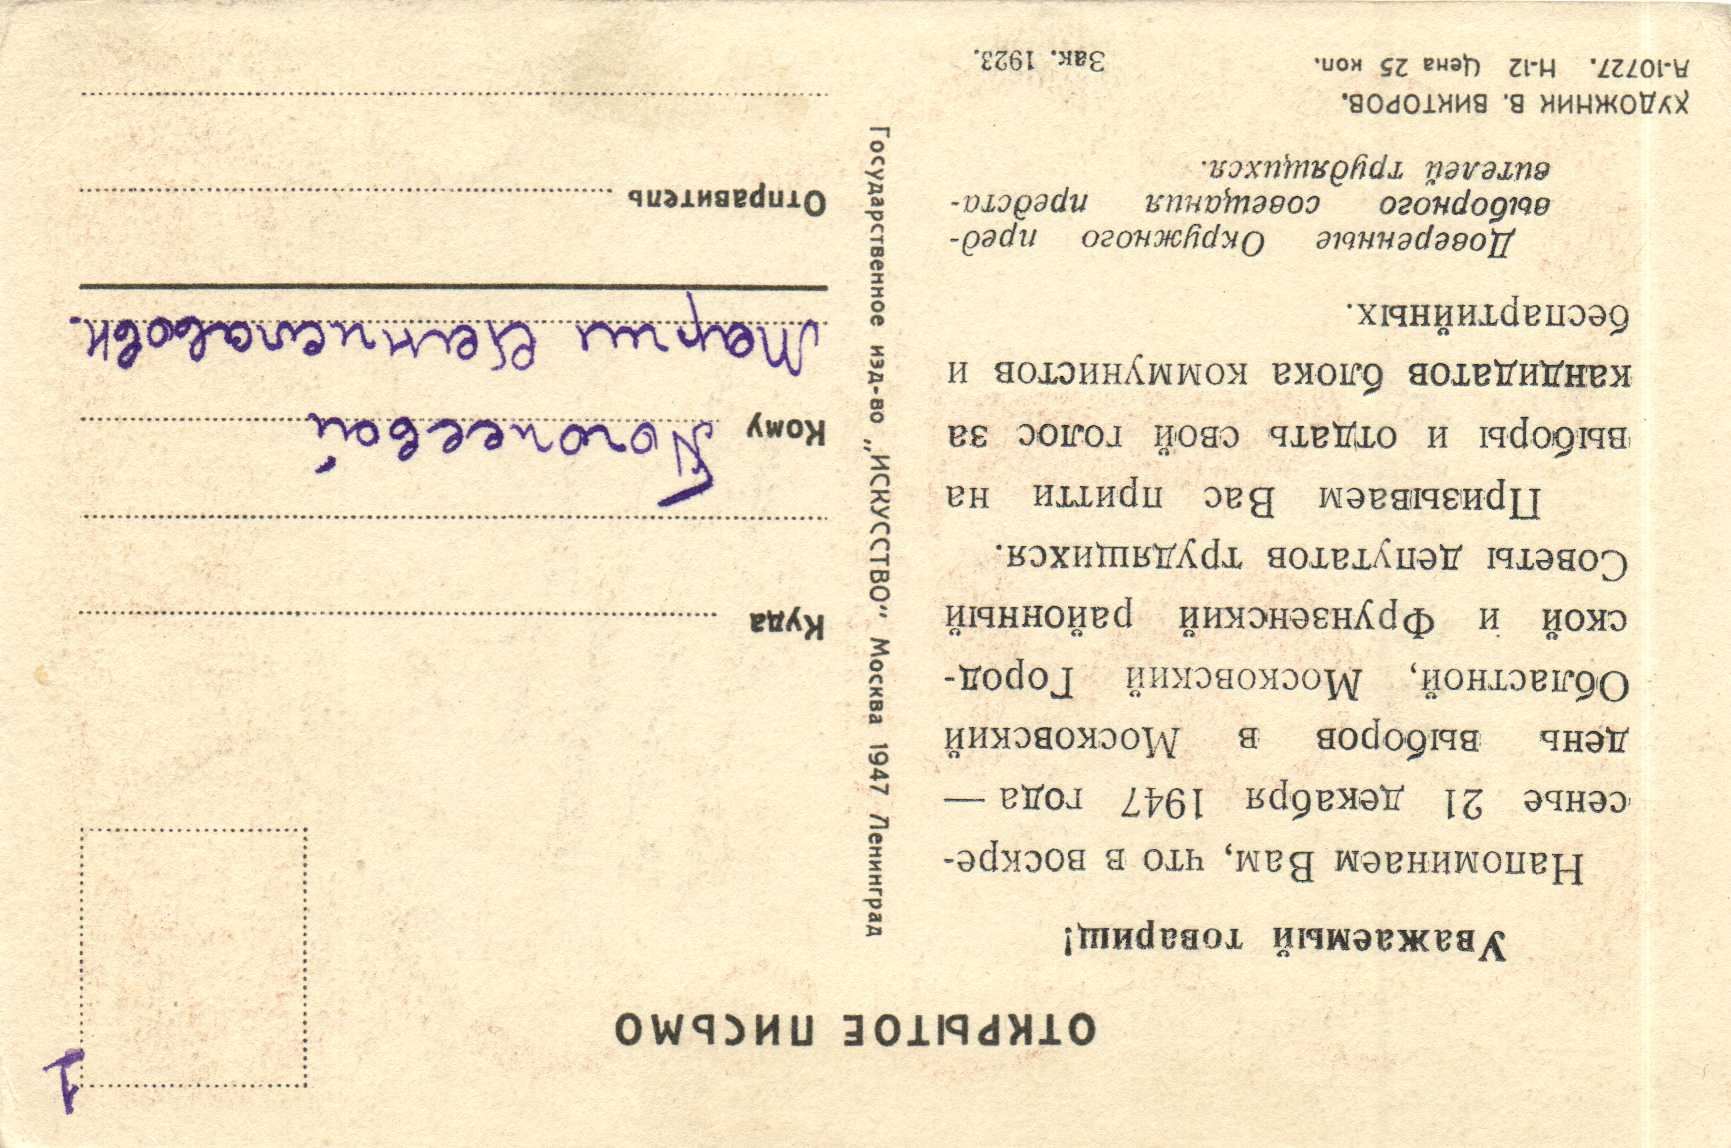 ОТКРЫТОЕ ПИСЬМО
1
Уважаемый товарищ!
Напоминаем Вам, что в воскре-
сенье 21 декабря 1947 года —
день выборов в Московский
Областной, Московский Город-
ской и Фрунзенский районный
Советы депутатов трудящихся.
Призываем Вас притти на
выборы и отдать свой голос за
кандидатов блока коммунистов и
беспартийных.
Доверенные Окружного пред-
выборного совещания предста-
вителей трудящихся.
ХУДОЖНИК В. ВИКТОРОВ.
А-10727. Н-12 Цена 25 коп.
Зак. 1923.
Государственное изд-во „ИСКУССТВО“ Москва 1947 Ленинград
Куда
Кому
Марии
Отправитель